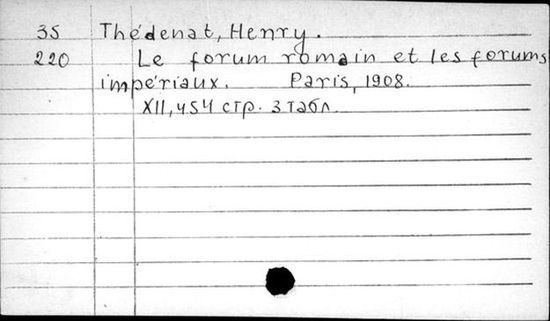 35 Thédenat, Henry.
220 Le forum romain et les forums
impériaux. Paris, 1908.
XII, 454 стр. 3 табл.